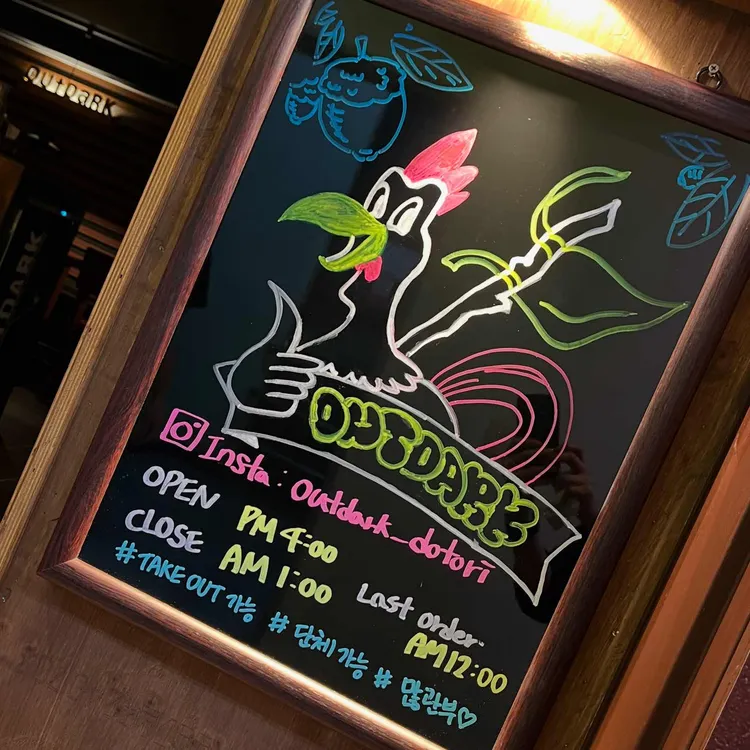 OUTDARK
DARK
OUTDARK
Insta : outdark_dotori
OPEN PM 4:00
CLOSE AM 1:00
Last order. AM 12:00
#TAKE OUT 가능 # 단체 가능 # 많관부♡